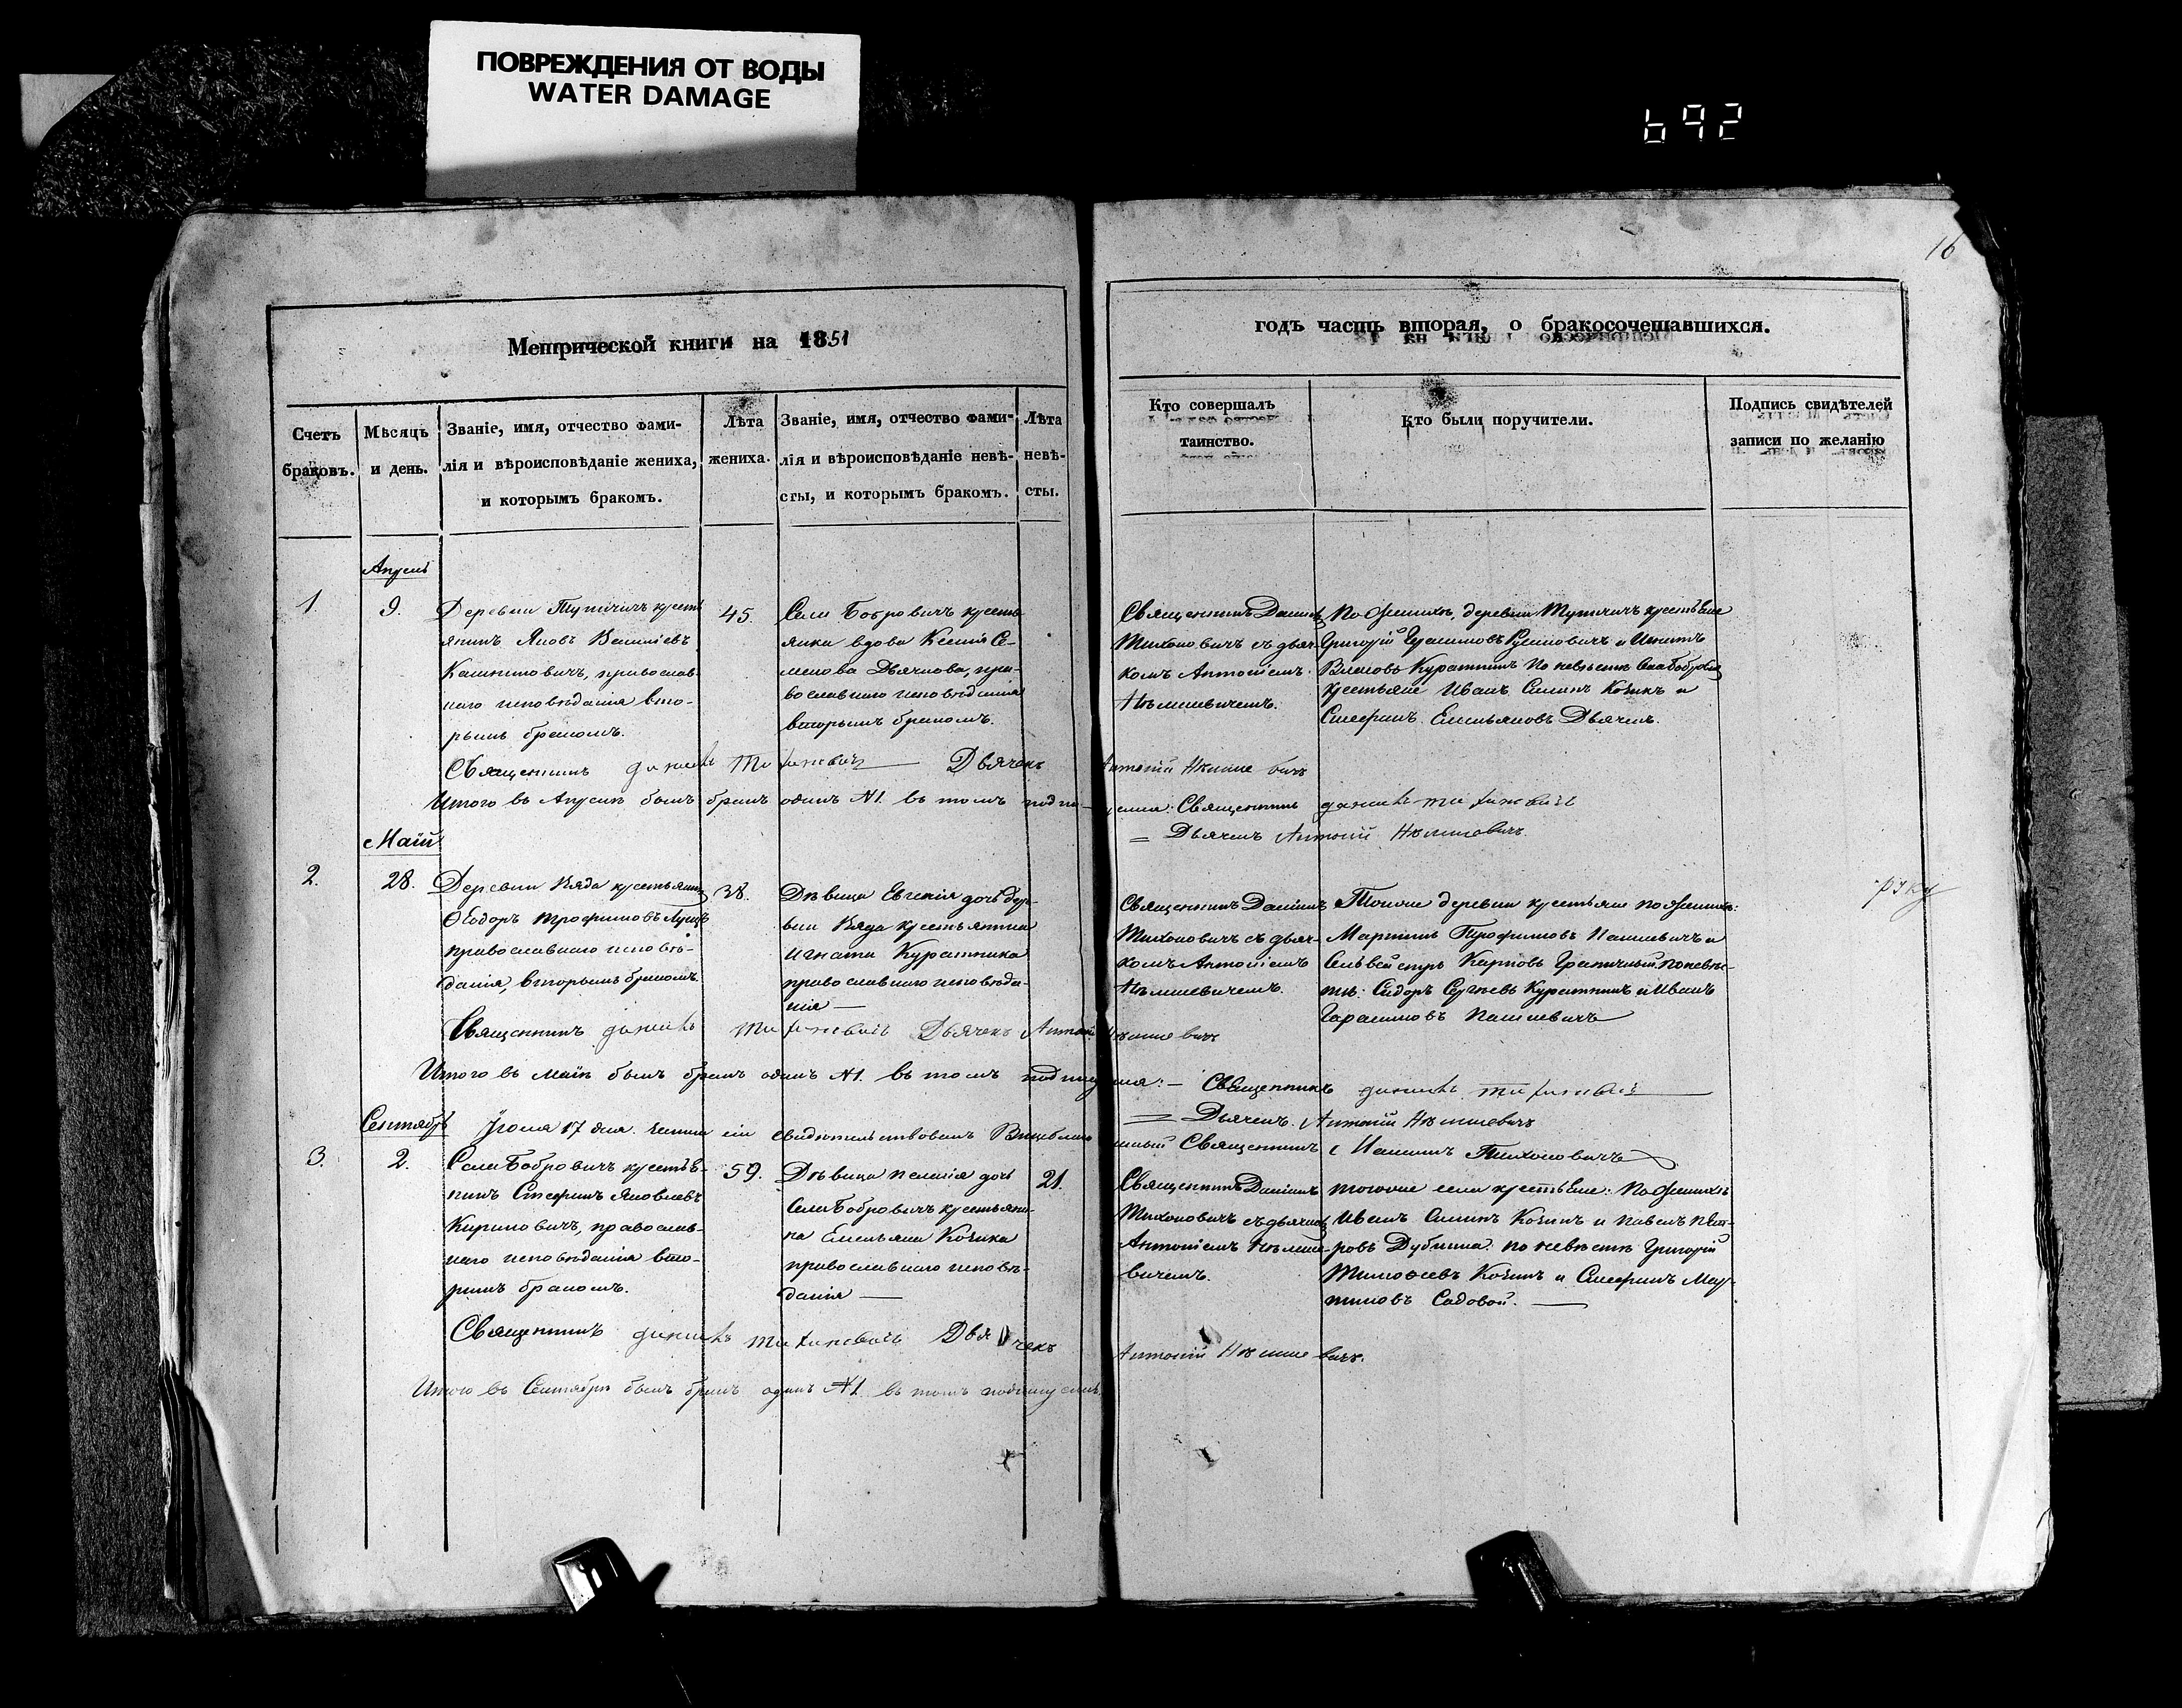 ПОВРЕЖДЕНИЯ ОТ ВОДЫ
WATER DAMAGE
692
16
Метрической книги на 1851
годъ часть вторая, о бракосочетавшихся.
Счетъ
браковъ.
Мѣсяцъ
и день.
Званіе, имя, отчество фами-
лія и вѣроисповѣданіе жениха,
и которымъ бракомъ.
Лѣта
жениха.
Званіе, имя, отчество фами-
лія и вѣроисповѣданіе невѣ-
сты, и которымъ бракомъ.
Лѣта
невѣ-
сты.
Кто совершалъ
таинство.
Кто были поручители.
Подпись свидѣтелей
записи по желанію
Апрель
1.
9.
Деревни Тупичичъ кресть
янинъ Яковъ Василіевъ
православ-
наго исповѣданія вто-
рымъ бракомъ.
45.
Села Бобровичъ кресть
янка вдова Ксенія Се-
менова Дьячкова, пра-
вославнаго исповѣданія
вторымъ бракомъ.
Священникъ Даніилъ
Тихоновичъ съ дьяч-
комъ Антоніемъ
Нѣмшевичемъ.
По женихѣ, деревни Тупичичъ крестьяне
Григорій и Игнатъ
Куратникъ по невѣстѣ Села Бобровичъ
крестьяне Иванъ Козикъ и
Стефанъ Емельяновъ Дьячекъ.
Священникъ Даніилъ Тихоновичъ Дьячекъ Антоній Нѣмшевичъ
Итого въ Апрелѣ былъ бракъ одинъ №1. въ томъ подписуемся: Священникъ Даніилъ Тихоновичъ
= Дьячекъ Антоній Нѣмшевичъ.
Май
2.
28.
Деревни Вяда крестьянинъ
Ѳеодоръ Трофимовъ
православнаго исповѣ-
данія, вторымъ бракомъ.
38.
Дѣвица Евгенія дочь дер-
вни Вяда крестьянина
Игната Куратника
православнаго исповѣда-
нія —
Священникъ Даніилъ
Тихоновичъ съ дьяч-
комъ Антоніемъ
Нѣмшевичемъ.
Тоюже деревни крестьяне по женихѣ:
Мартинъ Трофимовъ Пашкевичъ и
Сельвестръ Карповъ по невѣс-
тѣ: Сидоръ Сергѣевъ Куратникъ и Иванъ
Гарасимовъ Пашкевичъ
Священникъ Даніилъ Тихоновичъ Дьячекъ Антоній Нѣмшевичъ
Итого въ Маѣ былъ бракъ одинъ №1. въ томъ подписуемся: — Священникъ Даніилъ Тихоновичъ
= Дьячекъ. Антоній Нѣмшевичъ
Сентябрь
Іюля 17 дня. свидѣтельствовалъ Священникъ Тихоновичъ
3.
2.
Села Бобровичъ крестья-
нинъ Стефанъ Яковлевъ
Кириковичъ, православ-
наго исповѣданія вто-
рымъ бракомъ.
59.
Дѣвица Пелагія дочь
Села Бобровичъ крестьяни-
на Емельяна Козика
православнаго исповѣ-
данія —
21.
Священникъ Даніилъ
Тихоновичъ съ дьячкомъ
Антоніемъ Нѣмше-
вичемъ.
тогоже села крестьяне: По женихѣ
Иванъ Козикъ и Павелъ Пет-
ровъ Дубина. по невѣстѣ Григорій
Тимоѳеевъ Козикъ и Стефанъ Мар-
тиновъ Садовой. —
Священникъ Даніилъ Тихоновичъ Дьячекъ Антоній Нѣмшевичъ.
Итого въ Сентябрѣ былъ бракъ одинъ №1. въ томъ подписуемся.
руку